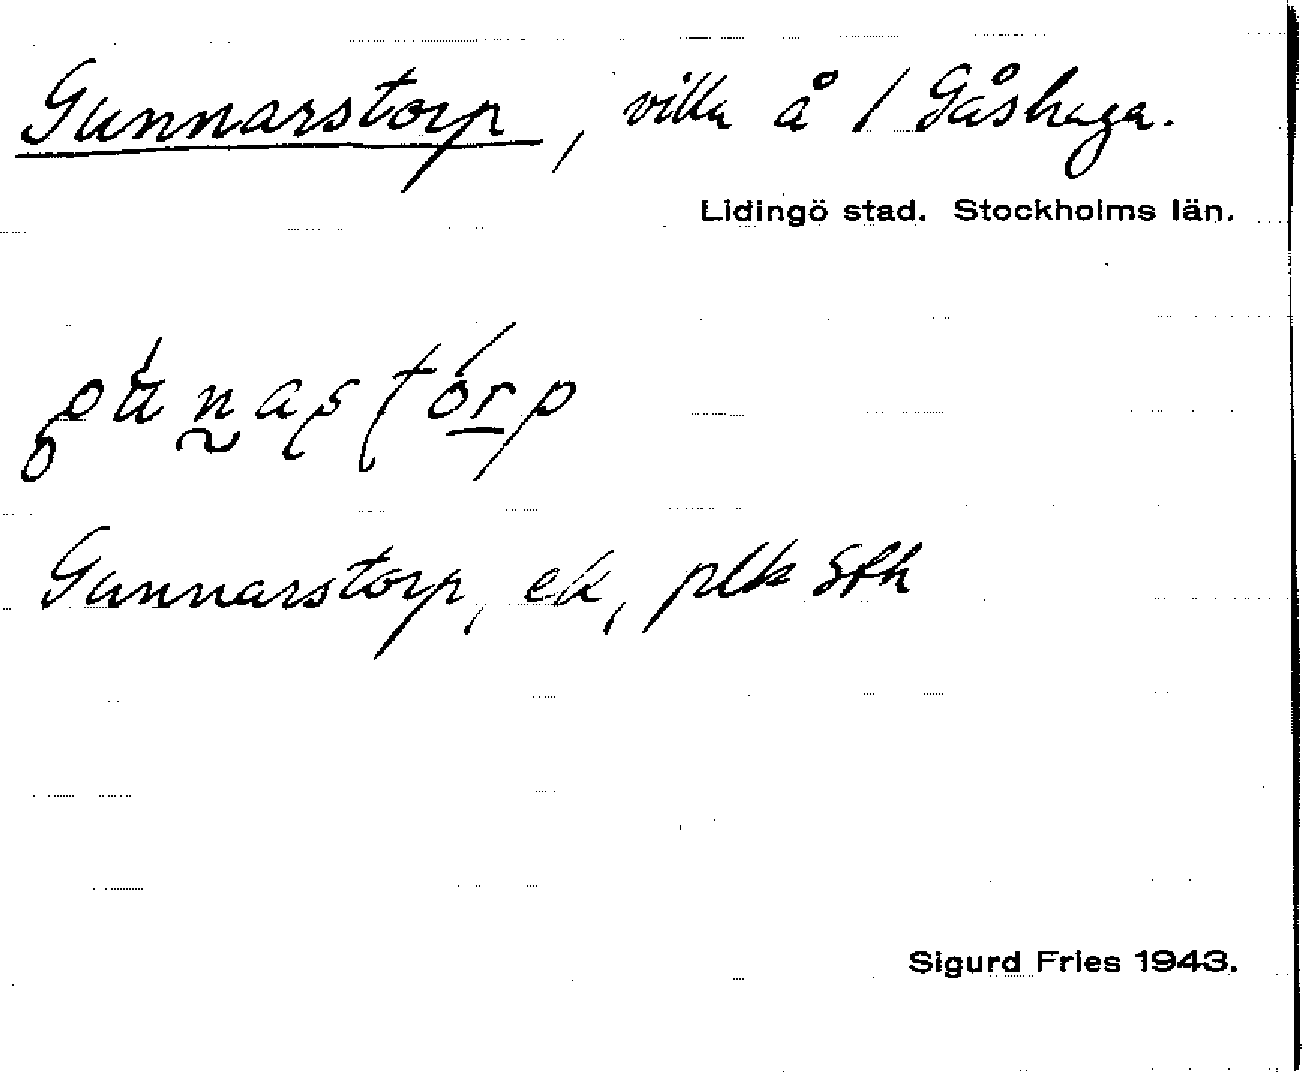 Gunnarstorp, villa å / Gåshaga.
Lidingö stad. Stockholms län.
Gunnarstorp, ek, plk Sthlm
Sigurd Fries 1943.